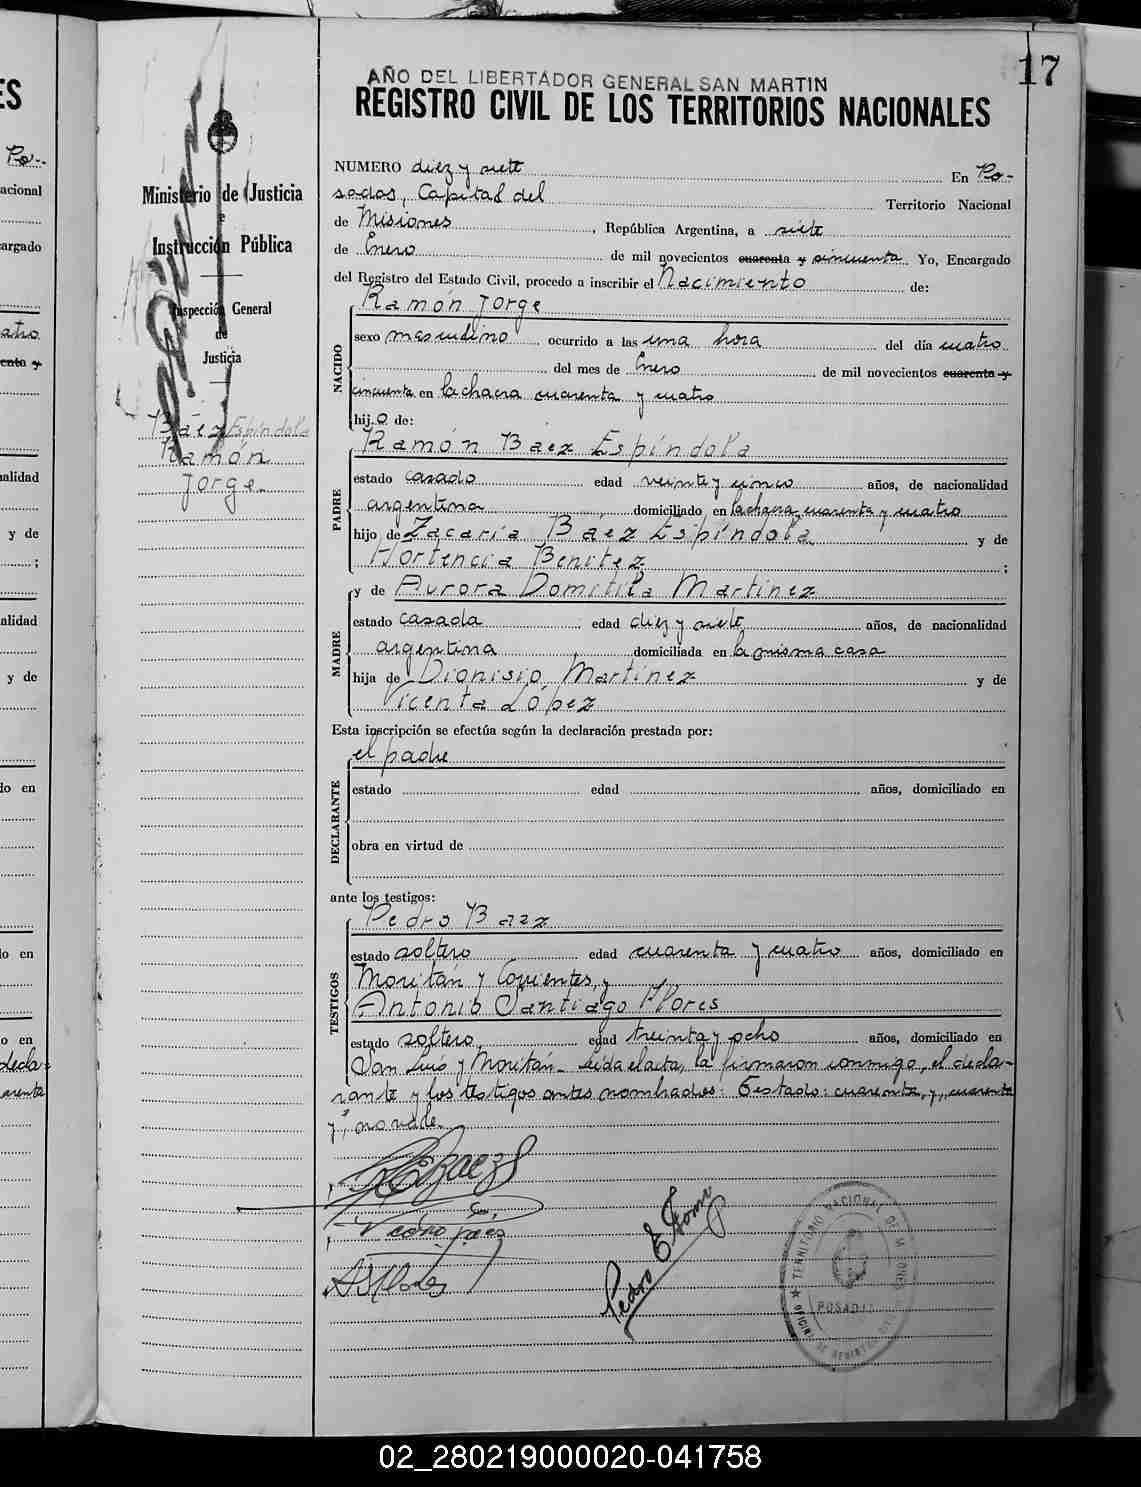 17
AÑO DEL LIBERTADOR GENERAL SAN MARTIN
REGISTRO CIVIL DE LOS TERRITORIOS NACIONALES
Ministerio de Justicia
e
Instrucción Pública
Inspección General
de
Justicia
Báez Espíndola
Ramón
Jorge.
NUMERO diez y siete En Po-
sadas, Capital del Territorio Nacional
de Misiones, República Argentina, a siete
de Enero de mil novecientos cuarenta y cincuenta Yo, Encargado
del Registro del Estado Civil, procedo a inscribir el Nacimiento de:
Ramón Jorge
NACIDO
sexo masculino ocurrido a las una hora del día cuatro
del mes de Enero de mil novecientos cuarenta y
cincuenta en la chacra cuarenta y cuatro
hijo de:
Ramón Báez Espíndola
PADRE
estado casado edad veinte y cinco años, de nacionalidad
argentina domiciliado en la chacra cuarenta y cuatro
hijo de Zacaría Báez Espíndola y de
Hortencia Benítez ;
y de Aurora Domitila Martínez
MADRE
estado casada edad diez y siete años, de nacionalidad
argentina domiciliada en la misma casa
hija de Dionisio Martínez y de
Vicenta López
Esta inscripción se efectúa según la declaración prestada por:
el padre
DECLARANTE
estado edad años, domiciliado en
obra en virtud de
ante los testigos:
Pedro Baez
TESTIGOS
estado soltero edad cuarenta y cuatro años, domiciliado en
Moritán y Corrientes, y
Antonio Santiago Flores
estado soltero edad treinta y ocho años, domiciliado en
San Luis y Moritán. Leída el acta, la firmaron conmigo, el decla-
rante y los testigos antes nombrados: Testado: cuarenta, y, cuarenta
y, no vale.
Pedro Báez
TERRITORIO NACIONAL DE MISIONES
POSADAS
OFICINA DE REGISTRO CIVIL
ES
Po-
acional
argado
atro
enta y
alidad
y de
;
alidad
y de
do en
o en
o en
decla
arenta
02_280219000020-041758